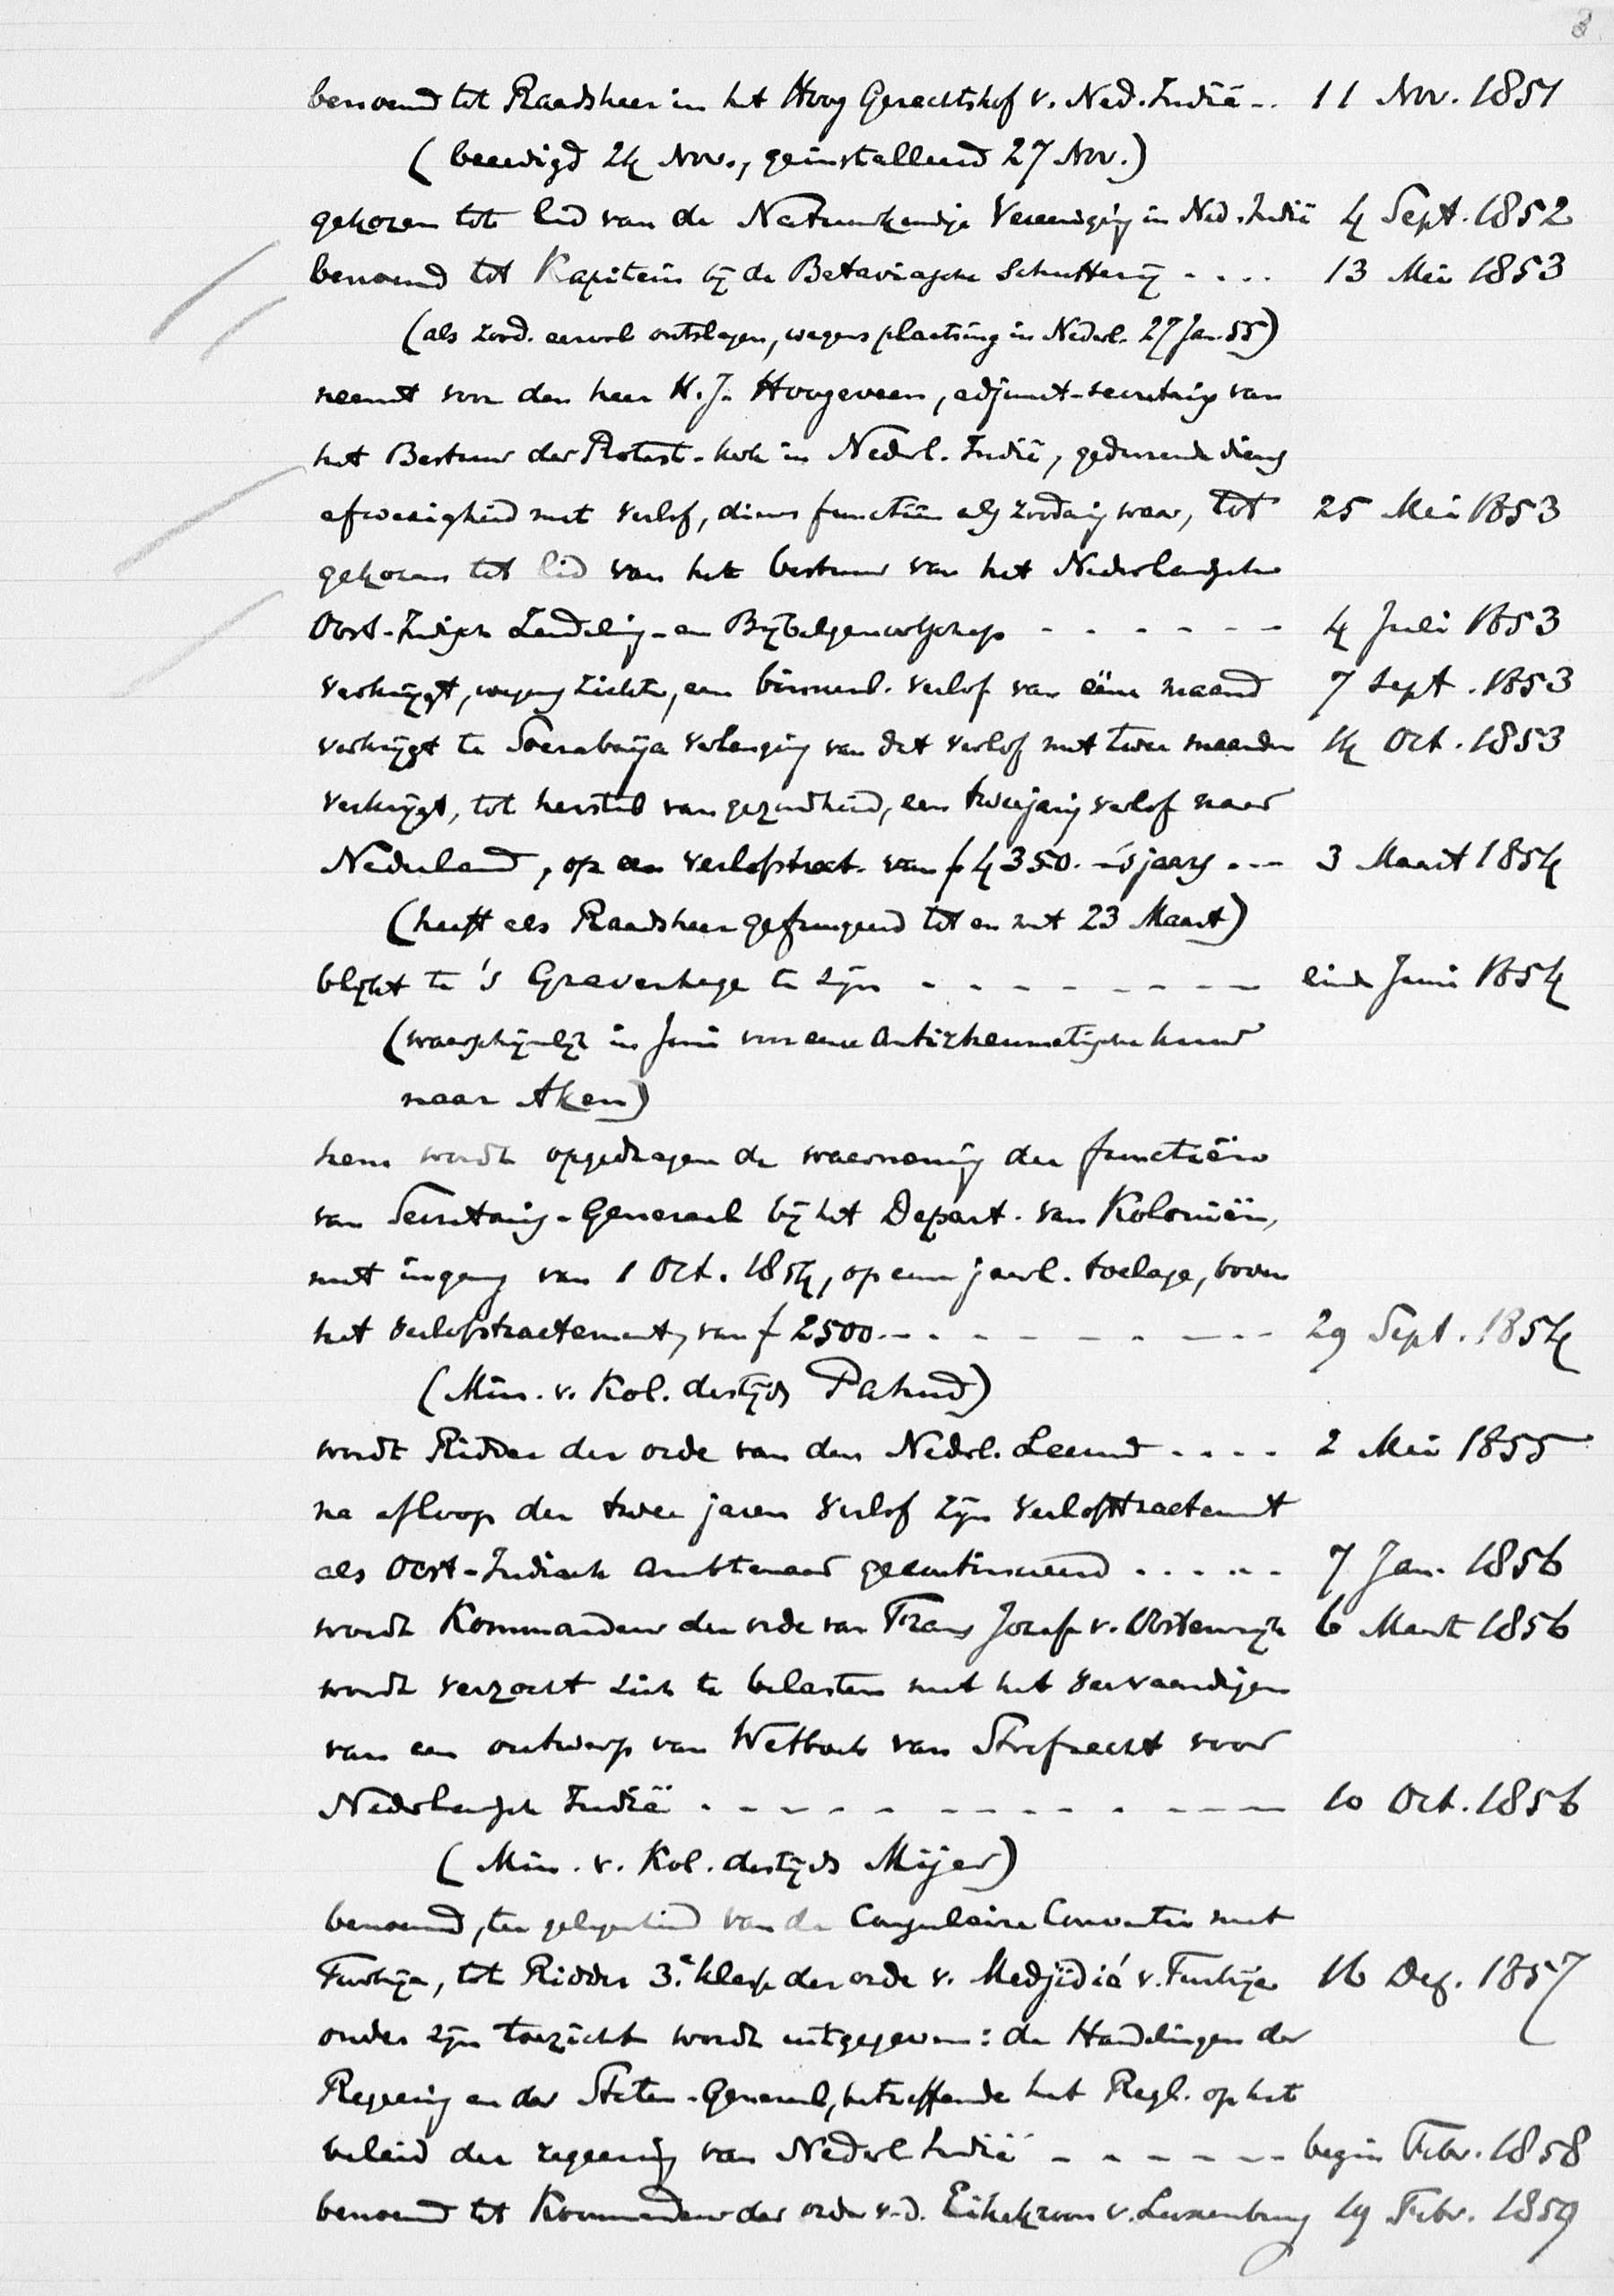 3
benoemd tot Raadsheer in het Hoog Gerechtshof v. Ned. Indië -. 11 Nov. 1851
(beeedigd 24 Nov., geinstalleerd 27 Nov.)
gekozen tot lid van de Natuurkundige Vereeniging in Ned. Indië 4 Sept. 1852
benoemd tot Kapitein bij de Bataviasche Schutterij - . . . 13 Mei 1853
(als zood. eervol ontslagen, wegens plaatsing in Nederl. 27 Jan. 55)
neemt voor den heer H. J. Hoogeveen, adjunct-secretaris van
het Bestuur der Protest. kerk in Nederl. Indië, gedurende diens
afwezigheid met verlof, diens functiën als zoodanig waar, tot 25 Mei 1853
gekozen tot lid van het bestuur van het Nederlandsche
Oost-Indisch Zendeling- en Bijbelgenootschap - - - - - - 4 Juli 1853
verkrijgt, wegens ziekte, een binnenl. verlof van ééne maand 7 Sept. 1853
verkrijgt te Soerabaija verlenging van dat verlof met twee maanden 14 Oct. 1853
verkrijgt, tot herstel van gezondheid, een tweejarig verlof naar
Nederland, op een verloftract. van f 4350.- 'sjaars . - - 3 Maart 1854
(heeft als Raadsheer gefungeerd tot en met 23 Maart)
blijkt te 's Gravenhage te zijn - - - - - - - - - eind Juni 1854
(waarschijnlijk in Juni voor eene antirheumatische kuur
naar Aken)
hem wordt opgedragen de waarneming der functiën
van Secretaris-Generaal bij het Depart. van Koloniën,
met ingang van 1 Oct. 1854, op eene jaarl. toelage, boven
het verlofstractement, van f 2500.- - - - - - - - - 29 Sept. 1854
(Min. v. Kol. destijds Pahud)
wordt Ridder der orde van den Nederl. Leeuw . . . . 2 Mei 1855
na afloop der twee jaren verlof zijn verloftractement
als Oost-Indisch ambtenaar gecontinueerd . . . . . . 7 Jan. 1856
wordt Kommandeur der orde van Frans Jozef v. Oostenrijk 6 Maart 1856
wordt verzocht zich te belasten met het vervaardigen
van een ontwerp van Wetboek van Strafrecht voor
Nederlandsch Indië . - - - - - - - - - - - - 10 Oct. 1856
(Min. v. Kol. destijds Mijer)
benoemd, ter gelegenheid van de Consulaire Conventie met
Turkije, tot Ridder 3.e klasse der orde v. Medjidié v. Turkije 16 Dez. 1857
onder zijn toezicht wordt uitgegeven: de Handelingen der
Regeering en der Staten-Generaal, betreffende het Regl. op het
beleid der regeering van Nederl Indië - - - - - - begin Febr. 1858
benoemd tot Kommandeur der orde v.d. Eikekroon v. Luxemburg 19 Febr. 1859